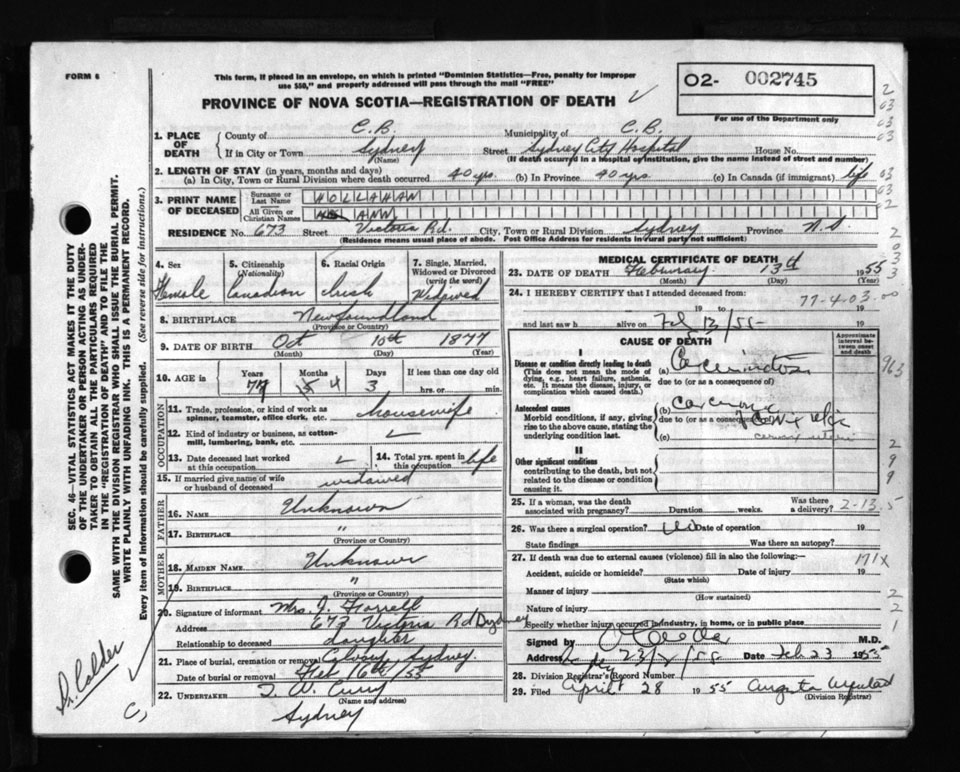 FORM 6
This form, if placed in an envelope, on which is printed "Dominion Statistics—Free, penalty for improper
use $50," and properly addressed will pass through the mail "FREE"
PROVINCE OF NOVA SCOTIA—REGISTRATION OF DEATH
02- 002745
For use of the Department only
1. PLACE OF DEATH County of C.B. Municipality of C.B.
If in City or Town Sydney Street Sydney City Hospital House No.
(Name) (If death occurred in a hospital or institution, give the name instead of street and number)
2. LENGTH OF STAY (in years, months and days)
(a) In City, Town or Rural Division where death occurred 40 yrs. (b) In Province 40 yrs. (c) In Canada (if immigrant) life
3. PRINT NAME OF DECEASED Surname or Last Name HOLLAHAN
All Given or Christian Names ANN
RESIDENCE No. 673 Street Victoria Rd. City, Town or Rural Division Sydney Province N.S.
(Residence means usual place of abode. Post Office Address for residents in rural party not sufficient)
4. Sex Female
5. Citizenship (Nationality) Canadian
6. Racial Origin Irish
7. Single, Married, Widowed or Divorced (write the word) Widowed
8. BIRTHPLACE Newfoundland
(Province or Country)
9. DATE OF BIRTH Oct 10th 1877
(Month) (Day) (Year)
10. AGE in Years 77 Months 4 Days 3 If less than one day old hrs. or min.
OCCUPATION
11. Trade, profession, or kind of work as spinner, teamster, office clerk, etc. housewife
12. Kind of industry or business, as cotton-mill, lumbering, bank, etc.
13. Date deceased last worked at this occupation
14. Total yrs. spent in this occupation life
15. If married give name of wife or husband of deceased widowed
FATHER
16. NAME Unknown
17. BIRTHPLACE "
(Province or Country)
MOTHER
18. MAIDEN NAME Unknown
19. BIRTHPLACE "
(Province or Country)
20. Signature of informant Mrs. J. Farrell
Address 673 Victoria Rd Sydney
Relationship to deceased daughter
21. Place of burial, cremation or removal Calvary Sydney
Date of burial or removal Feb 16th/55
22. UNDERTAKER T. W. Curry
(Name and address)
Sydney
MEDICAL CERTIFICATE OF DEATH
23. DATE OF DEATH February 13th 1955
(Month) (Day) (Year)
24. I HEREBY CERTIFY that I attended deceased from
77-4-03.00
19 to 19
and last saw h alive on Feb 13/55 19
CAUSE OF DEATH
Approximate interval between onset and death
I
Disease or condition directly leading to death
(This does not mean the mode of dying, e.g., heart failure, asthenia, etc. It means the disease, injury, or complication which caused death.)
(a)
due to (or as a consequence of)
Antecedent causes
Morbid conditions, if any, giving rise to the above cause, stating the underlying condition last.
(b)
due to (or as a consequence of)
(c)
II
Other significant conditions
contributing to the death, but not related to the disease or condition causing it.
25. If a woman, was the death associated with pregnancy? Duration weeks. Was there a delivery?
2-13.5
26. Was there a surgical operation? No Date of operation
State findings Was there an autopsy?
27. If death was due to external causes (violence) fill in also the following:—
171x
Accident, suicide or homicide? Date of injury 19
(State which)
Manner of injury
(How sustained)
Nature of injury
Specify whether injury occurred in industry, in home, or in public place
Signed by M.D.
Address Date Feb. 23 1955
28. Division Registrar's Record Number
29. Filed April 28 1955
(Division Registrar)
SEC. 46—VITAL STATISTICS ACT MAKES IT THE DUTY
OF THE UNDERTAKER OR PERSON ACTING AS UNDER-
TAKER TO OBTAIN ALL THE PARTICULARS REQUIRED
IN THE "REGISTRATION OF DEATH" AND TO FILE THE
SAME WITH THE DIVISION REGISTRAR WHO SHALL ISSUE THE BURIAL PERMIT.
WRITE PLAINLY WITH UNFADING INK. THIS IS A PERMANENT RECORD.
Every item of information should be carefully supplied. (See reverse side for instructions.)
Dr. Calder